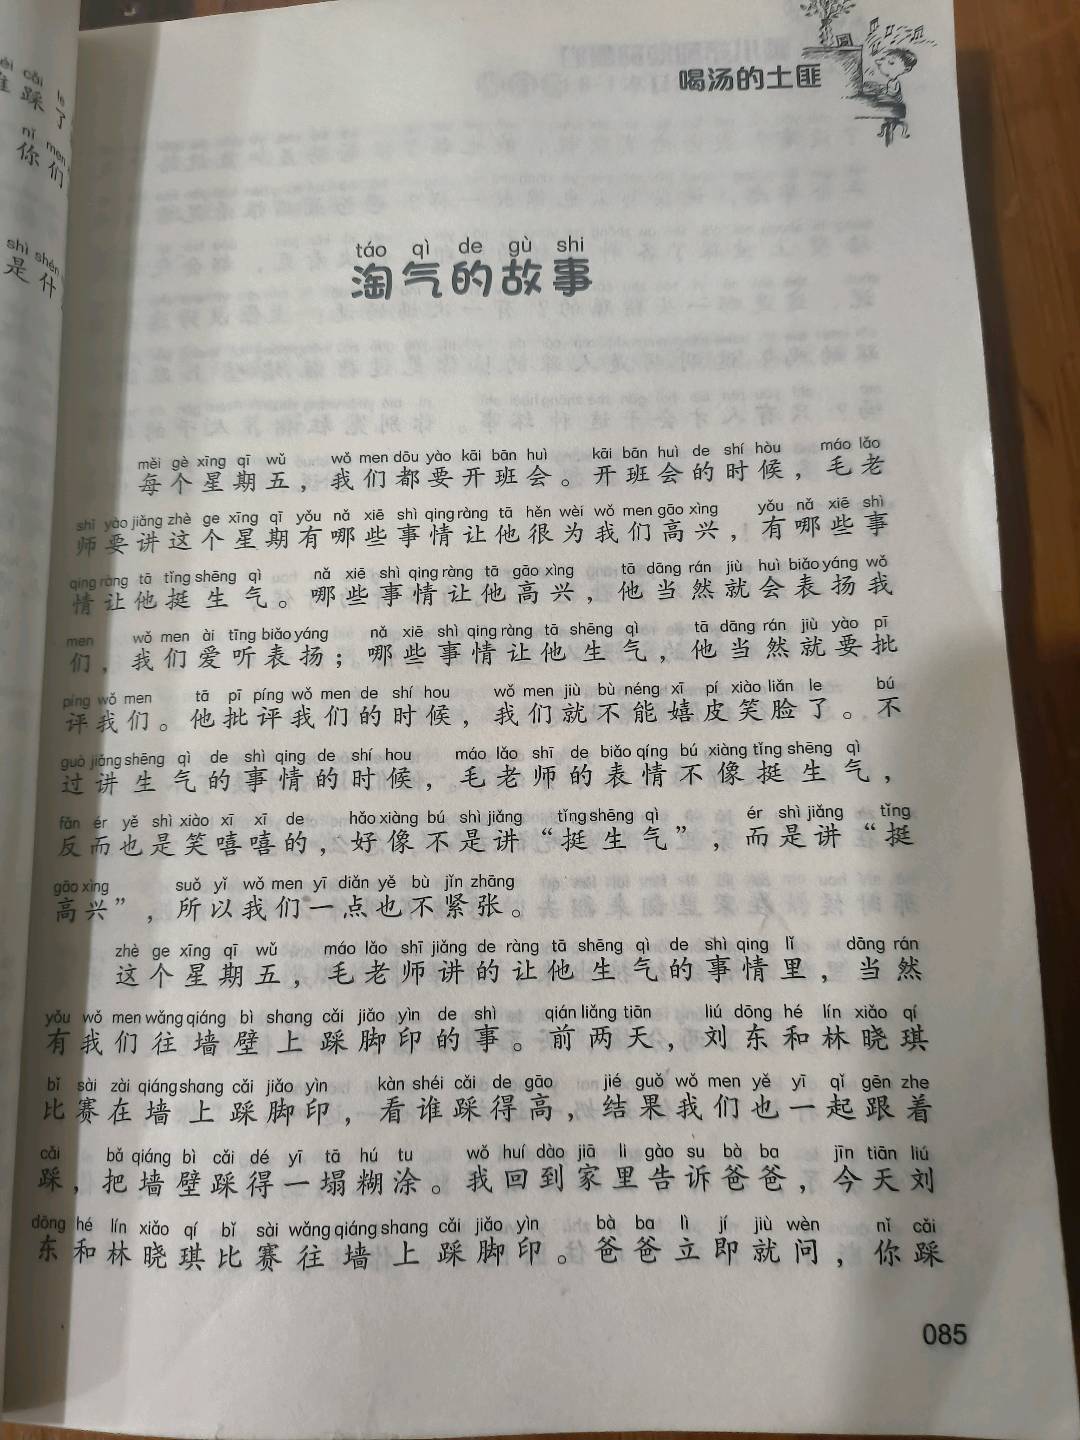 喝汤的土匪
táo qì de gù shi
淘气的故事
měi gè xīng qī wǔ wǒ men dōu yào kāi bān huì kāi bān huì de shí hòu máo lǎo
每个星期五，我们都要开班会。开班会的时候，毛老
shī yào jiǎng zhè ge xīng qī yǒu nǎ xiē shì qing ràng tā hěn wèi wǒ men gāo xìng yǒu nǎ xiē shì
师要讲这个星期有哪些事情让他很为我们高兴，有哪些事
qing ràng tā tǐng shēng qì nǎ xiē shì qing ràng tā gāo xìng tā dāng rán jiù huì biǎo yáng wǒ
情让他挺生气。哪些事情让他高兴，他当然就会表扬我
men wǒ men ài tīng biǎo yáng nǎ xiē shì qing ràng tā shēng qì tā dāng rán jiù yào pī
们，我们爱听表扬；哪些事情让他生气，他当然就要批
píng wǒ men tā pī píng wǒ men de shí hou wǒ men jiù bù néng xī pí xiào liǎn le bú
评我们。他批评我们的时候，我们就不能嬉皮笑脸了。不
guò jiǎng shēng qì de shì qing de shí hou máo lǎo shī de biǎo qíng bú xiàng tǐng shēng qì
过讲生气的事情的时候，毛老师的表情不像挺生气，
fǎn ér yě shì xiào xī xī de hǎo xiàng bú shì jiǎng tǐng shēng qì ér shì jiǎng tǐng
反而也是笑嘻嘻的，好像不是讲“挺生气”，而是讲“挺
gāo xìng suǒ yǐ wǒ men yī diǎn yě bù jǐn zhāng
高兴”，所以我们一点也不紧张。
zhè ge xīng qī wǔ máo lǎo shī jiǎng de ràng tā shēng qì de shì qing lǐ dāng rán
这个星期五，毛老师讲的让他生气的事情里，当然
yǒu wǒ men wǎng qiáng bì shang cǎi jiǎo yìn de shì qián liǎng tiān liú dōng hé lín xiǎo qí
有我们往墙壁上踩脚印的事。前两天，刘东和林晓琪
bǐ sài zài qiáng shang cǎi jiǎo yìn kàn shéi cǎi de gāo jié guǒ wǒ men yě yī qǐ gēn zhe
比赛在墙上踩脚印，看谁踩得高，结果我们也一起跟着
cǎi bǎ qiáng bì cǎi dé yī tā hú tu wǒ huí dào jiā li gào su bà ba jīn tiān liú
踩，把墙壁踩得一塌糊涂。我回到家里告诉爸爸，今天刘
dōng hé lín xiǎo qí bǐ sài wǎng qiáng shang cǎi jiǎo yìn bà ba lì jí jiù wèn nǐ cǎi
东和林晓琪比赛往墙上踩脚印。爸爸立即就问，你踩
085